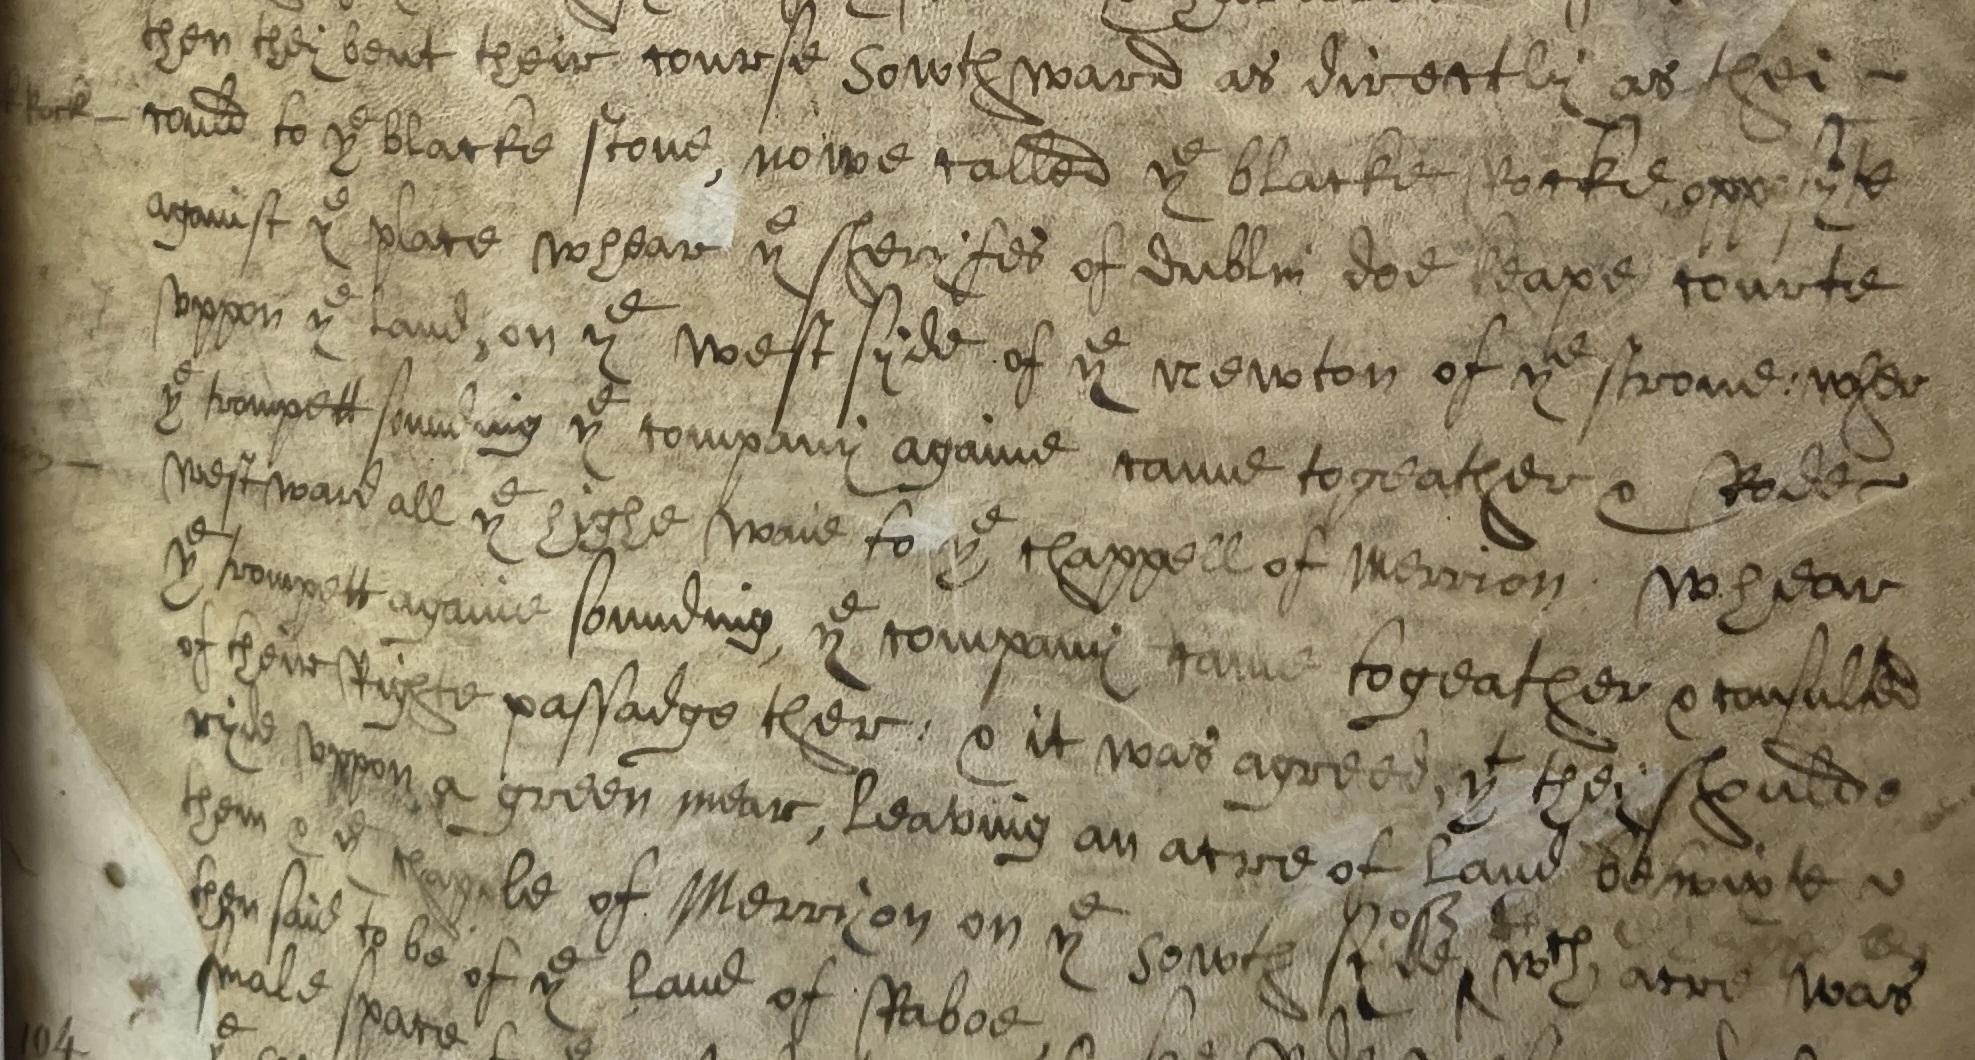 then thei bent their course Sowthward as directly as thei
Rock – could to yͤ blacke stone, nowe called yͤ blacke Rocke, oppsyte
against yͤ place whear yͤ sheryfes of dublin doe keape courte
vppon yͤ land, on yͤ west syde of yͤ newton of yͤ strone: wher
yͤ trompett sounding yͤ company againe came togeather & Rode
westward all yͤ highe waie to yͤ chappell of Merrion. Whear
yͤ trompett againe sounding, yͤ company came togeather & consulted
of their Righte passadge ther: & it was agreed, yͭ thei shoulde
ryde vppon a green mear, leaving an acre of land betwixte
them & yͤ chapple of Merryon on yͤ sowth side, wᵗʰ acre was
then said to be of yͤ land of Raboe,
smale space
104